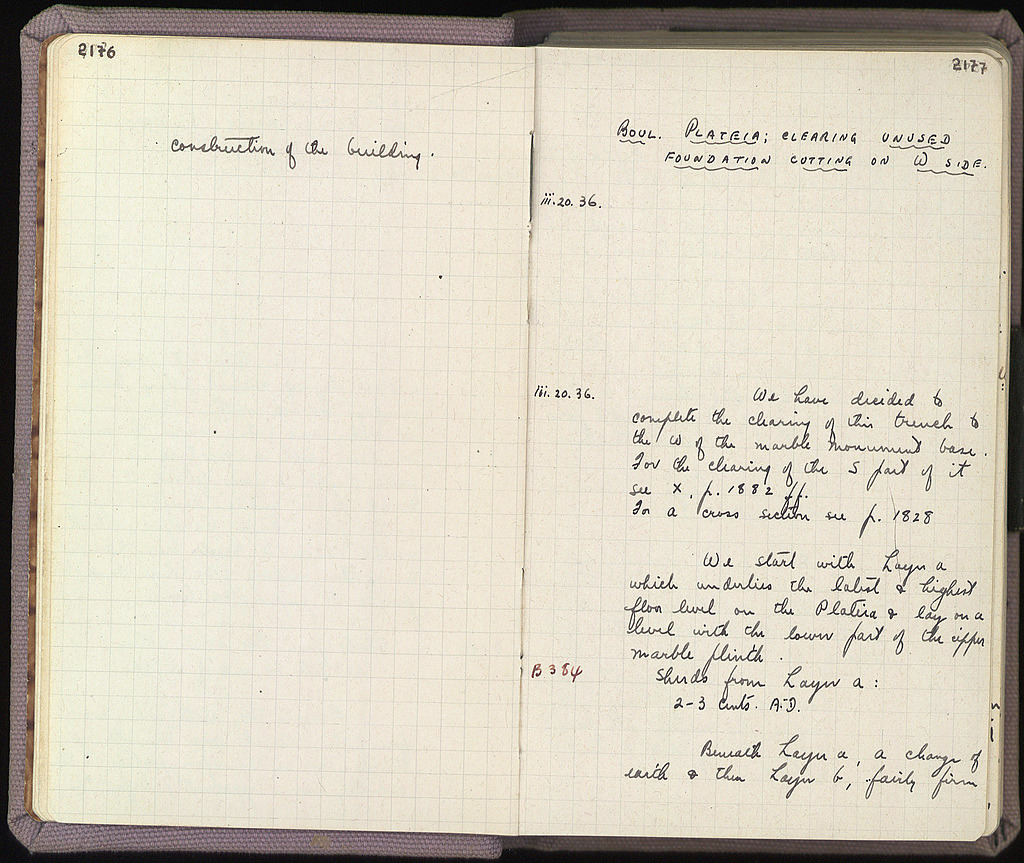 2176
construction of the building.
2177
BOUL. PLATEIA; CLEARING UNUSED
FOUNDATION CUTTING ON W SIDE.
iii.20.36.
iii.20.36.
We have decided to
complete the clearing of this trench to
the W of the marble monument base.
For the clearing of the S part of it
see X, p. 1882 ff.
For a cross section see p. 1828
We start with Layer a
which underlies the latest & highest
floor level on the Plateia & lay on a
level with the lower part of the upper
marble plinth.
B 384
Sherds from Layer a:
2-3 cents. A.D.
Beneath Layer a, a change of
earth & then Layer b, fairly firm